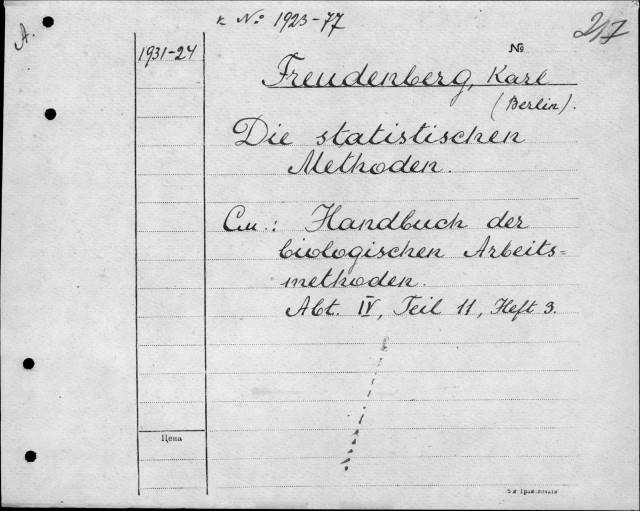 A.
к № 1923-77
217
1931-24
№
Freudenberg, Karl
(Berlin).
Die statistischen
Methoden.
См.: Handbuch der
biologischen Arbeits=
methoden.
Abt. IV, Teil 11, Heft 3.
Цена